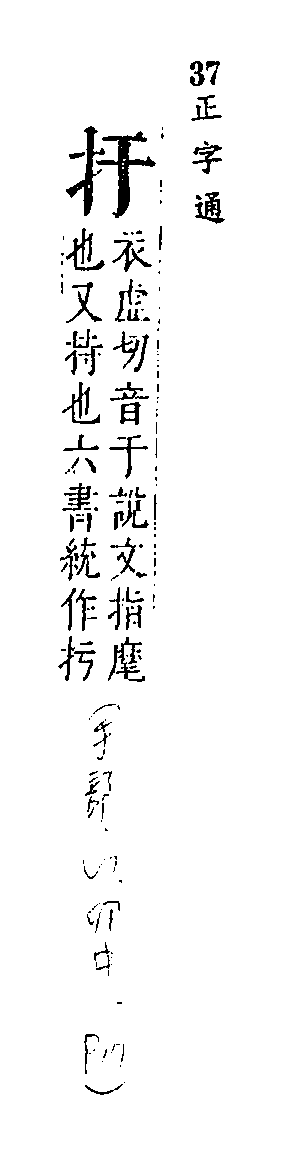 37正字通
扜
衣虛切音于說文指麾
也又持也六書統作扝
(手部